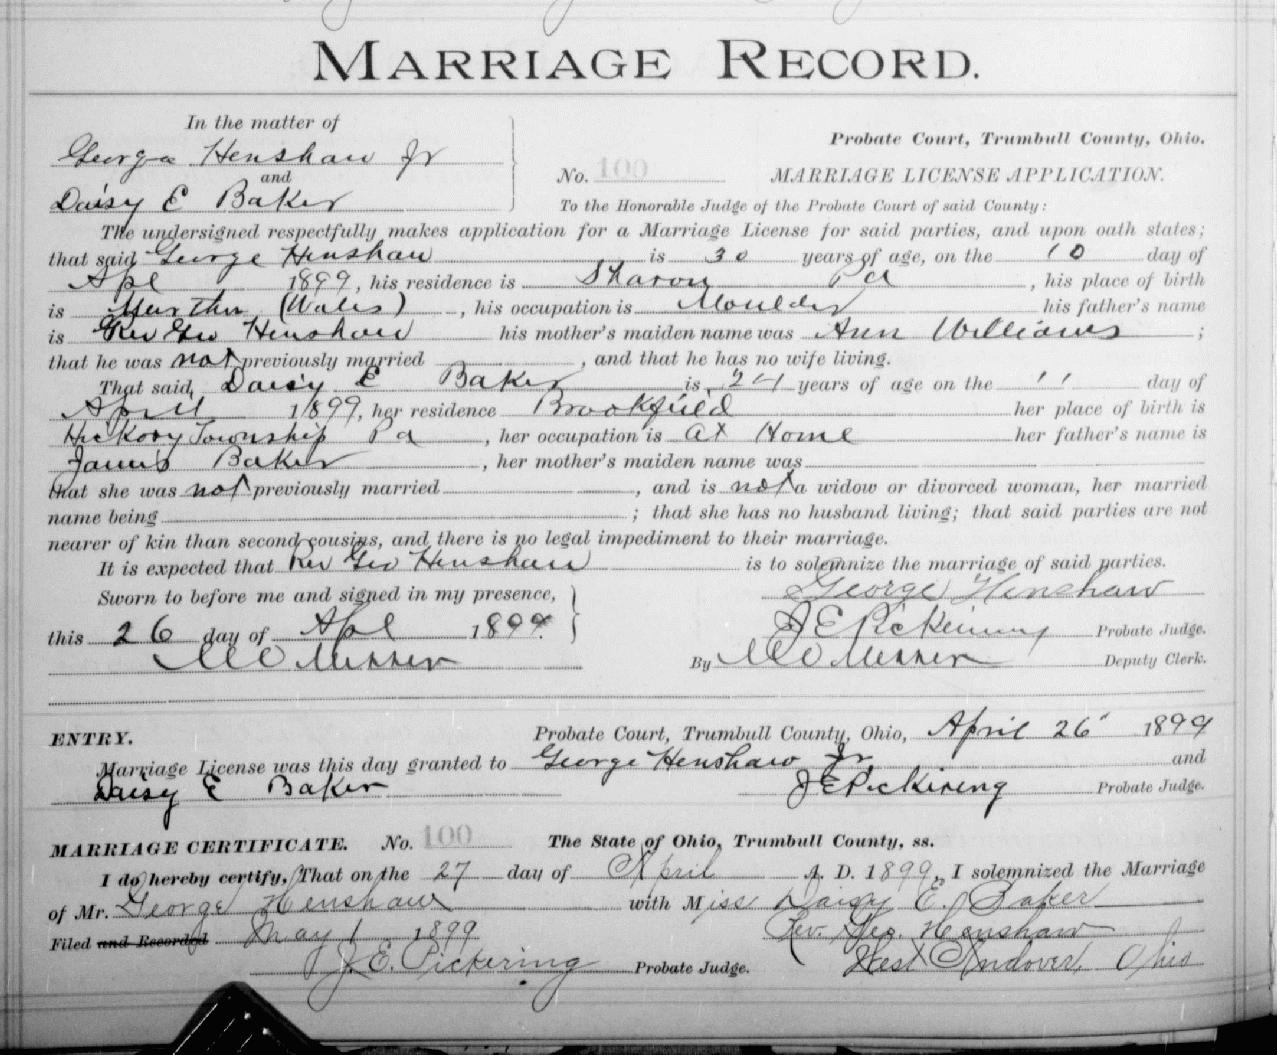 MARRIAGE RECORD.
In the matter of
George Henshaw Jr
and
Daisy E Baker
Probate Court, Trumbull County, Ohio.
No. 100 MARRIAGE LICENSE APPLICATION.
To the Honorable Judge of the Probate Court of said County:
The undersigned respectfully makes application for a Marriage License for said parties, and upon oath states;
that said George Henshaw is 30 years of age, on the 10 day of
Apl 1899, his residence is Sharon Pa, his place of birth
is (Wales), his occupation is Moulder his father's name
is Rev Geo Henshaw his mother's maiden name was Ann Williams;
that he was not previously married, and that he has no wife living.
That said, Daisy E Baker is years of age on the " day of
April 1899, her residence Brookfield her place of birth is
Hickory Township Pa, her occupation is at Home her father's name is
James Baker, her mother's maiden name was
that she was not previously married, and is not a widow or divorced woman, her married
name being; that she has no husband living; that said parties are not
nearer of kin than second cousins, and there is no legal impediment to their marriage.
It is expected that Rev Geo Henshaw is to solemnize the marriage of said parties.
Sworn to before me and signed in my presence,
George Henshaw
this 26 day of Apl 1899.
J E Pickering Probate Judge.
By Deputy Clerk.
ENTRY. Probate Court, Trumbull County, Ohio, April 26" 1899
Marriage License was this day granted to George Henshaw Jr and
Daisy E Baker J E Pickering Probate Judge.
MARRIAGE CERTIFICATE. No. 100 The State of Ohio, Trumbull County, ss.
I do hereby certify, That on the 27 day of April A. D. 1899, I solemnized the Marriage
of Mr. George Henshaw with Miss Daisy E. Baker
Filed and Recorded May 1 1899 Rev. Geo. Henshaw
J. E. Pickering Probate Judge. West Andover, Ohio